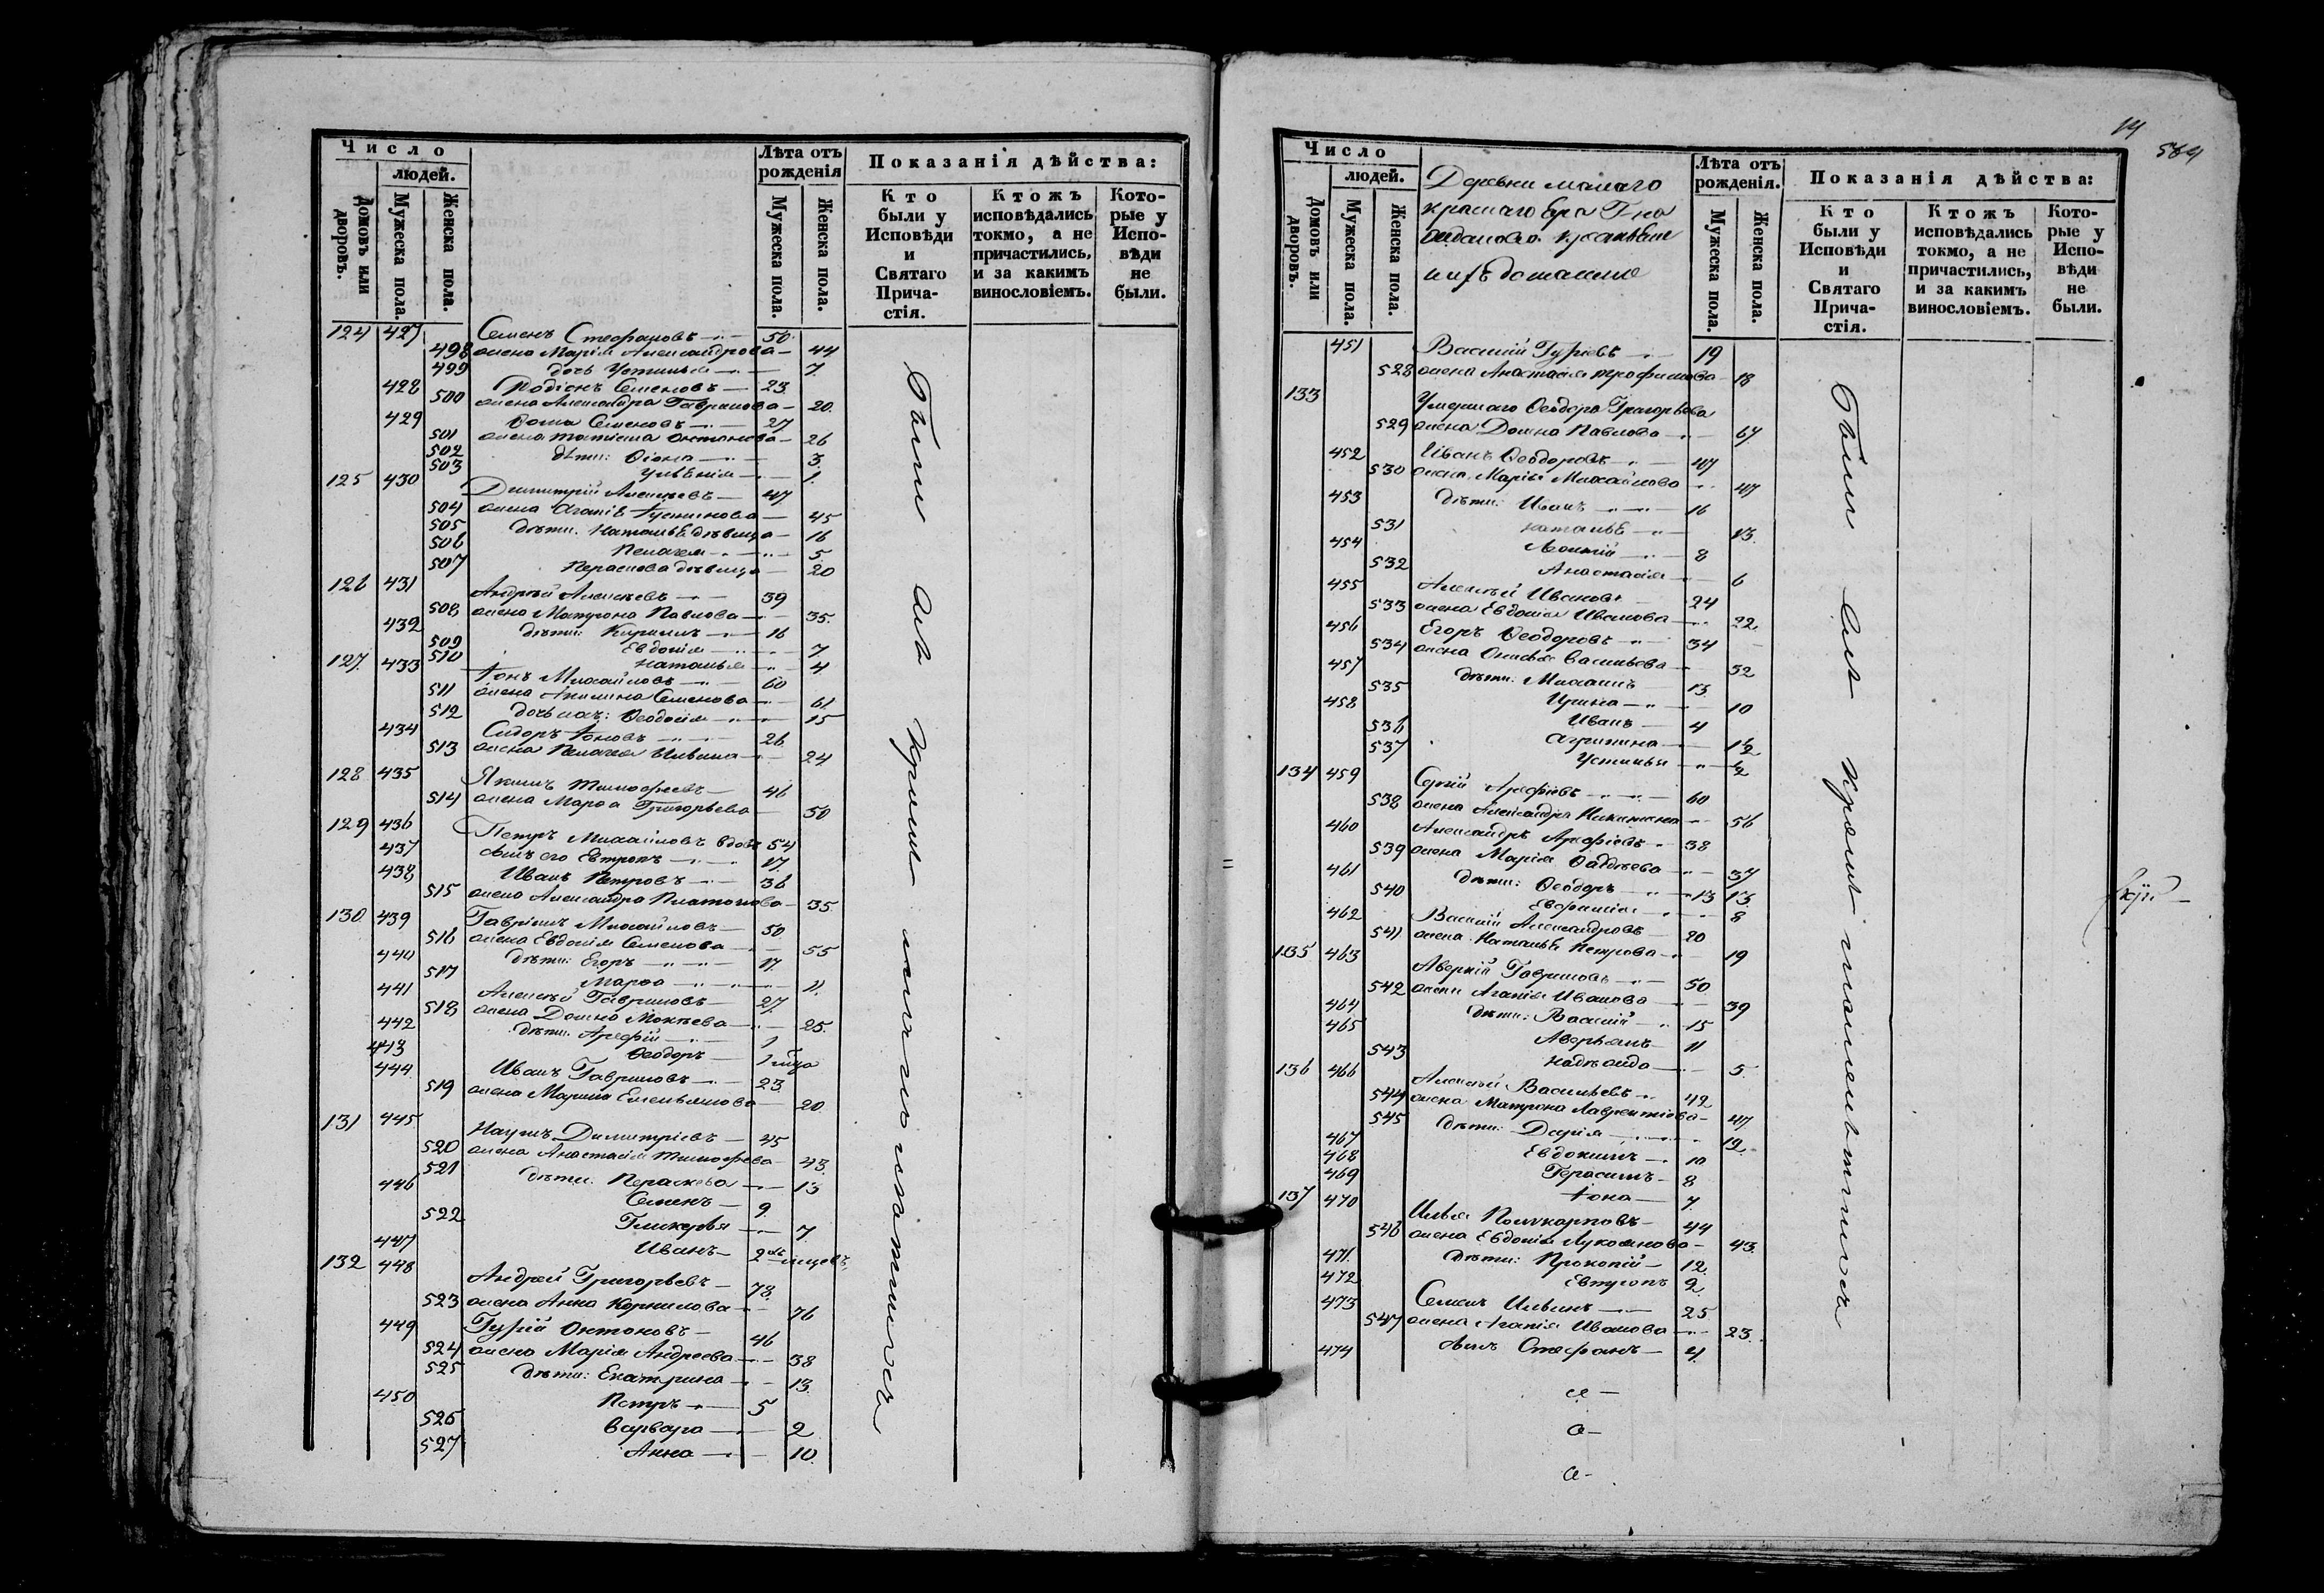 Число
людей.
Домовъ или дворовъ.
Мужеска пола.
Женска пола.
Лѣта отъ рожденія
Мужеска пола.
Женска пола.
Показанія дѣйства:
Кто были у Исповѣди и Святаго Прича-стія.
Ктожъ исповѣдались токмо, а не причастились, и за какимъ винословіемъ.
Кото-рые у Испо-вѣди не были.
124 427 Семенъ Стефановъ 50
498 жена Марія Александрова 44
499 дочь Устинья 7
428 Родіонъ Семеновъ 23
500 жена Александра Гаврилова 20
429 Ѳома Семеновъ 27
501 жена Татіана Антонова 26
502 дѣти: 3
503 1
125 430 Димитрій Алексѣевъ 47
504 жена Агапія 45
505 дѣти: Наталья дѣвица 16
506 Пелагея 5
507 дѣвица 20
126 431 Андрей Алексѣевъ 39
508 жена Матрона Павлова 35
432 дѣти: Кирилъ 16
509 Евдокія 7
510 Наталья 4
127 433 Іонъ Михайловъ 60
511 жена Акилина Семенова 61
512 дочь ихъ: Ѳеодосія 15
434 Сидоръ Іоновъ 26
513 жена Пелагея Ильина 24
128 435 Якимъ Тимофеевъ 46
514 жена Марѳа Григорьева 50
129 436 Петръ Михайловъ вдовъ 54
437 сынъ его Евтропъ 17
438 Иванъ Петровъ 36
515 жена Александра Платонова 35
130 439 Гаврилъ Михайловъ 50
516 жена Евдокія Семенова 55
440 дѣти: Егоръ 17
517 Марѳа 11
441 Алексѣй Гавриловъ 27
518 жена Домна Мокѣева 25
442 дѣти: Арефій 1
443 Ѳеодоръ
444 Иванъ Гавриловъ 23
519 жена Марина Емельянова 20
131 445 Наумъ Димитріевъ 45
520 жена Анастасія Тимофеева 43
521 дѣти: Параскева 13
446 Семенъ 9
522 Гликерья 7
447 Иванъ 2
132 448 Андрей Григорьевъ 78
523 жена Анна Корнилова 76
449 Гурій Антоновъ 46
524 жена Марія Андреева 38
525 дѣти: Екатерина 13
450 Петръ 5
526 Варвара 2
527 Анна 10
Были всѣ кромѣ
14
564
Число
людей.
Домовъ или дворовъ.
Мужеска пола.
Женска пола.
Деревни малаго
краснаго Г-на
крестьяне
и ихъ домашніе
Лѣта отъ рожденія.
Мужеска пола.
Женска пола.
Показанія дѣйства:
Кто были у Исповѣди и Святаго Прича-стія.
Ктожъ исповѣдались токмо, а не причастились, и за какимъ винословіемъ.
Кото-рые у Испо-вѣди не были.
451 Василій Гурьевъ 19
528 жена Анастасія Трофимова 18
133 Умершаго Ѳеодора Григорьева
529 жена Домна Павлова 67
452 Иванъ Ѳеодоровъ 47
530 жена Марія Михайлова 47
453 дѣти: Иванъ 16
531 Наталья 13
454 8
532 Анастасія 6
455 Алексѣй Ивановъ 24
533 жена Евдокія Иванова 22
456 Егоръ Ѳеодоровъ 34
534 жена Васильева 32
457 дѣти: Михаилъ 13
535 Ирина 10
458 Иванъ 4
536 Агрипина
537 Устинья
134 459 Сергій Арефіевъ 60
538 жена Александра Никитина 56
460 Александръ Арефіевъ 38
539 жена Марія Ѳаддѣева 37
461 дѣти: Ѳеодоръ 13 13
540 Евфросинія 8
462 Василій Александровъ 20
541 жена Наталья Петрова 19
135 463 Аверкій Гавриловъ 50
542 жена Агапія Иванова 39
464 дѣти: Василій 15
465 Аверьянъ 11
543 Надежда 5
136 466 Алексѣй Васильевъ 42
544 жена Матрона Лаврентіева 47
545 дѣти: Дарія 12
467 Евдокимъ 10
468 Герасимъ 8
469 Іона 7
137 470 Илья Поликарповъ 44
546 жена Евдокія Лукоянова 43
471 дѣти: Прокопій 12
472 Евтропъ 9
473 Семенъ Ильинъ 25
547 жена Агапія Иванова 23
474 сынъ Стефанъ 4
Были всѣ кромѣ